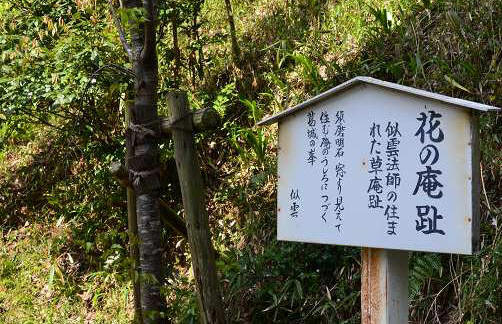 花の庵趾
似雲法師の住ま
れた草庵趾
須磨明石 窓より見えて
住む庵のうしろにつづく
葛城の峯
似雲